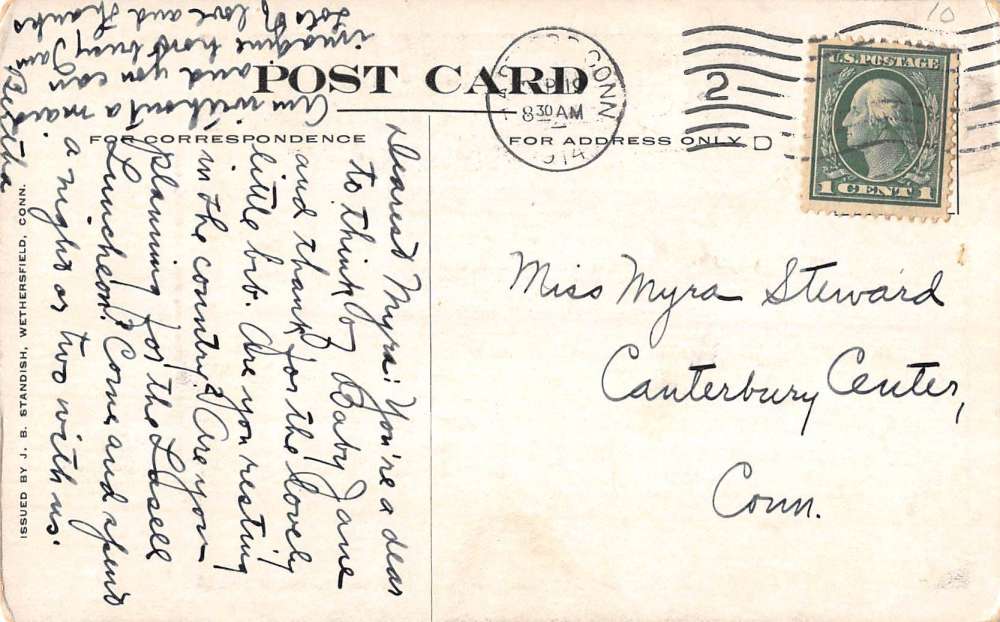 POST CARD
FOR CORRESPONDENCE
FOR ADDRESS ONLY
CONN
8 30 AM
1914
2
D
U.S. POSTAGE
1 CENT 1
10
Dearest Myra! You're a dear
to think of Baby Jane
and thank for the lovely
little bib. Are you resting
in the country? Are you
planning for the Lasell
Luncheon? Come and spend
a night or two with us.
Am without a maid
and you can
imagine how busy I am
Lots of love and thanks
Bertha
Miss Myra Steward
Canterbury Center,
Conn.
ISSUED BY J. B. STANDISH, WETHERSFIELD, CONN.